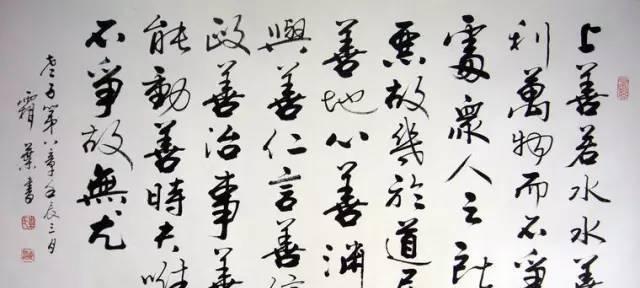 上善若水水善
利萬物而不爭
處眾人之所
惡故幾於道居
善地心善淵
與善仁言善信
政善治事善
能動善時夫唯
不爭故無尤
老子第八章壬辰三月
霜葉書